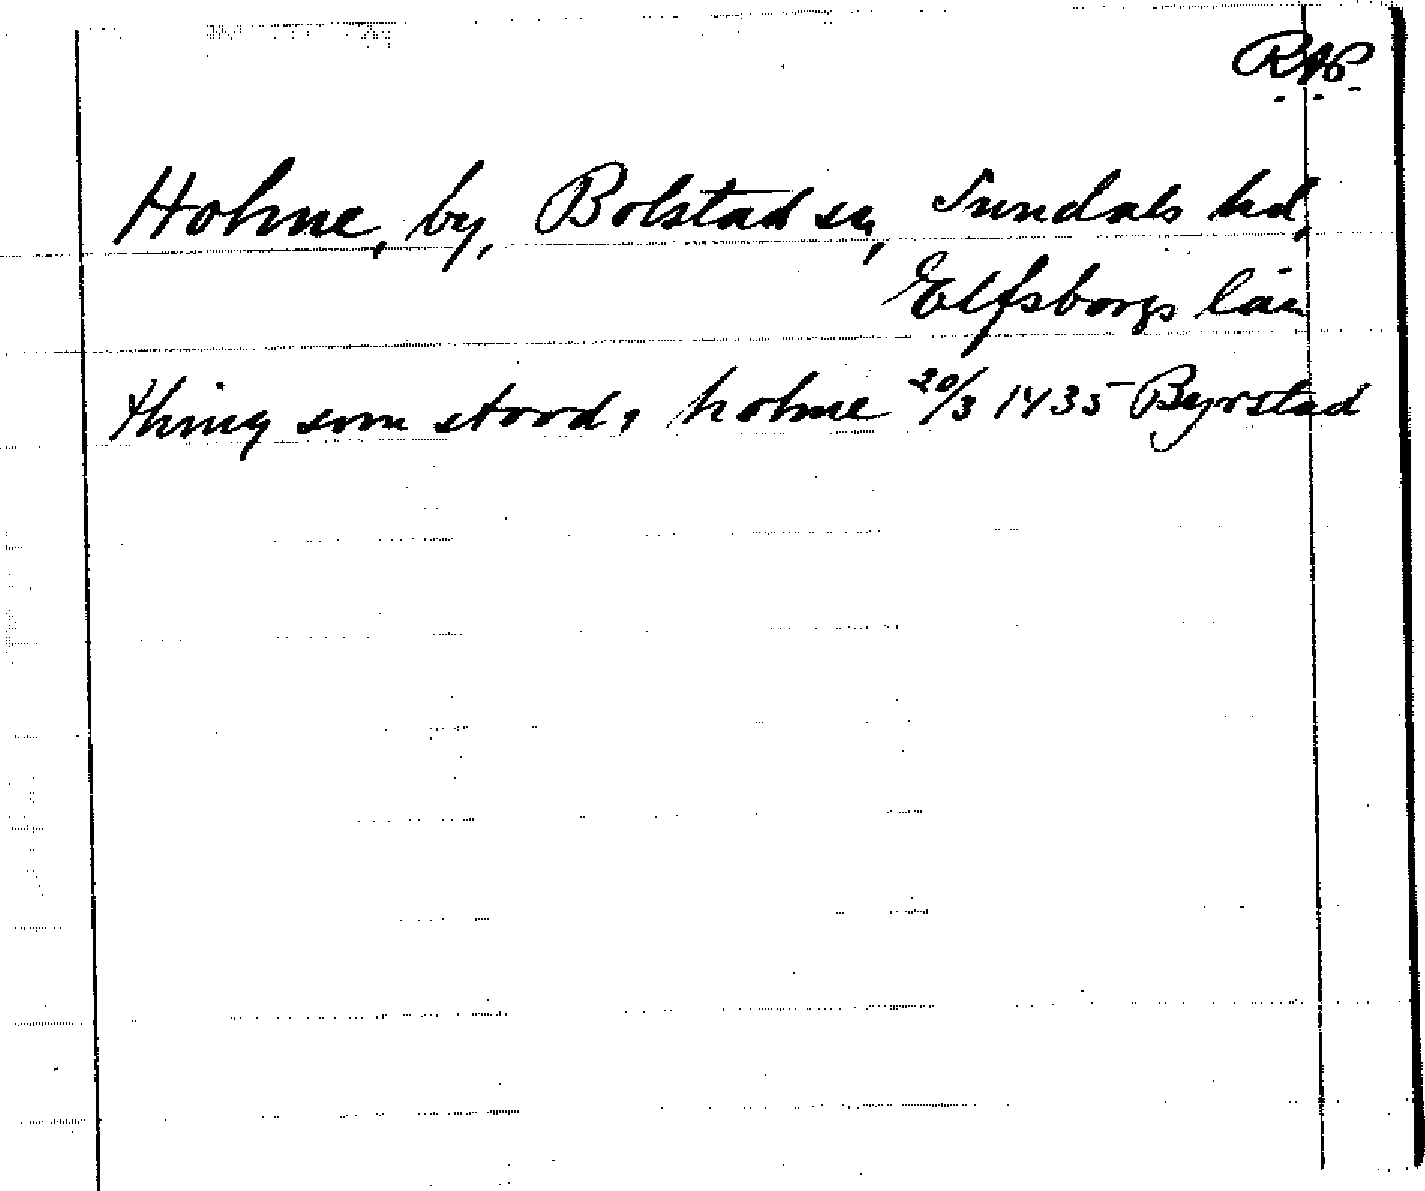 RAP
Hohne, by, Bolstad sn, Sundals hd,
Elfsborgs län
thing som stood, hohne 20/3 1435 Byrstad